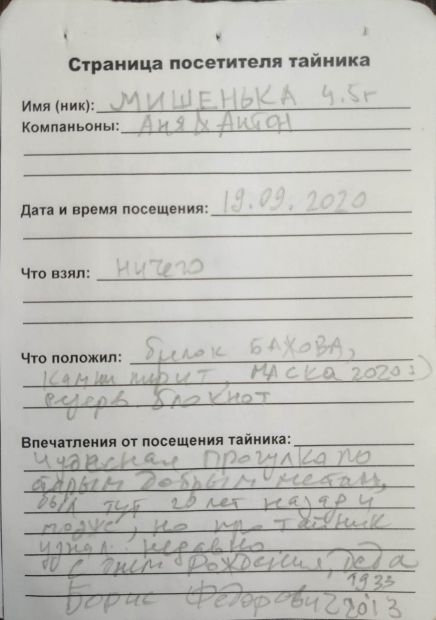 Страница посетителя тайника
Имя (ник): МИШЕНЬКА 4.5г
Компаньоны: Аня & Антон
Дата и время посещения: 19.09.2020
Что взял: ничего
Что положил: брелок БАХОВА,
камни пирит, МАСКА 2020 :)
резерв. блокнот
Впечатления от посещения тайника:
Чудесная прогулка по
старым добрым местам,
был тут 20 лет назад и
позже, но про тайник
узнал недавно.
С днем Рождения, деда
Борис Федорович 1933
2013